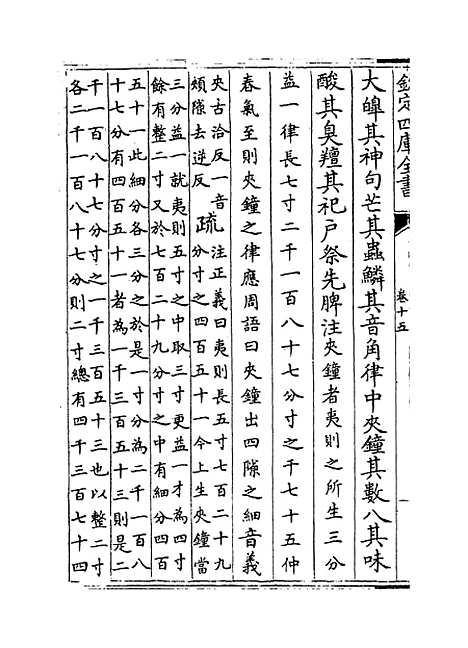 欽定四庫全書
卷十五
大皥其神句芒其蟲鱗其音角律中夾鐘其數八其味
酸其臭羶其祀户祭先脾注夾鐘者夷則之所生三分
益一律長七寸二千一百八十七分寸之千七十五仲
春氣至則夾鐘之律應周語曰夾鐘出四隙之細音義
夾古洽反一音
頰隙去逆反
疏
注正義曰夷則長五寸七百二十九
分寸之四百五十一今上生夾鐘當
三分益一就夷則五寸之中取三寸更益一才為四寸
餘有整二寸又於七百二十九分寸之中有細分四百
五十一此細分各三分之於是一寸分為二千一百八
十七分有四百五十一者為一千三百五十三則是二
千一百八十七分寸之一千三百五十三也以整二寸
各二千一百八十七分則二寸總有四千三百七十四